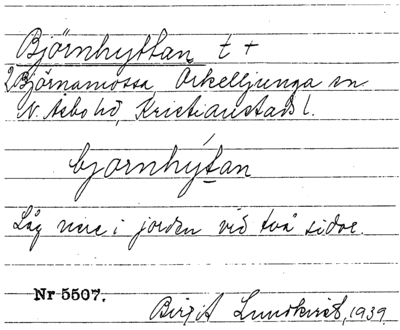 Björnhyttan, t +
2 Björnamossa, Örkelljunga sn
N. Åsbo hd, Kristianstads l.
bjornhýtan
Låg nere i jorden vid två sidor.
Nr 5507.
Birgit Lundkvist, 1939